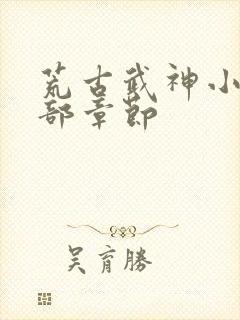 荒古武神小
部章節
吴育勝